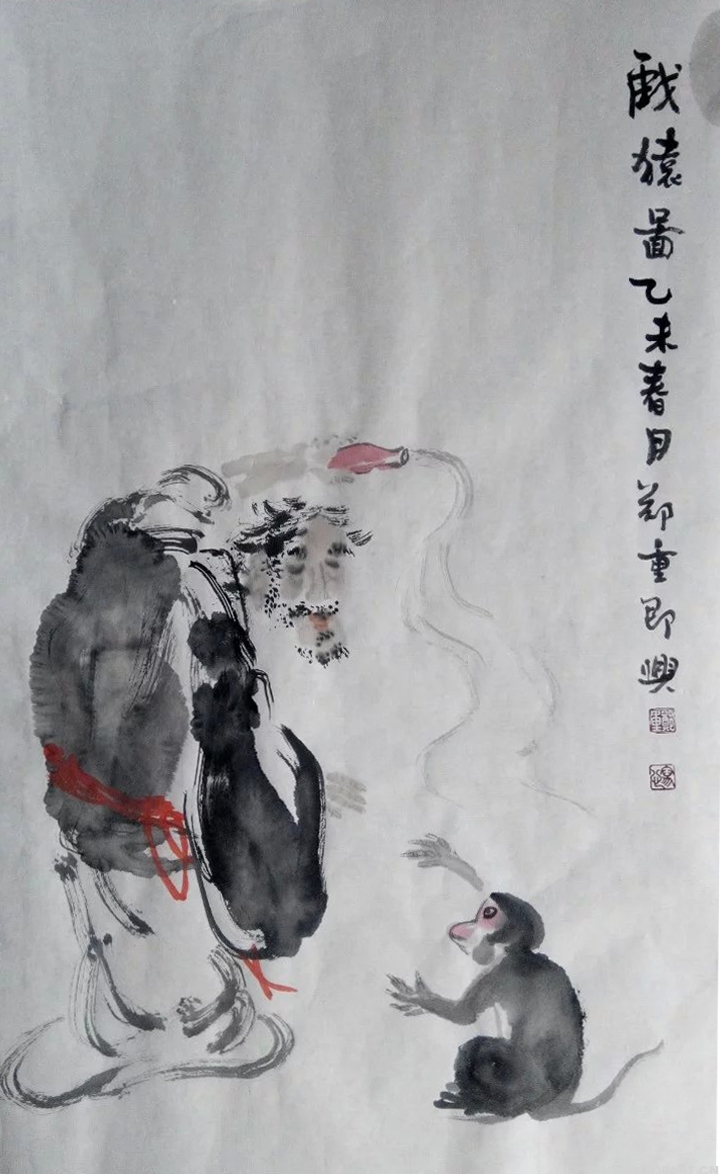 戲猿圖乙未春月郑重即興